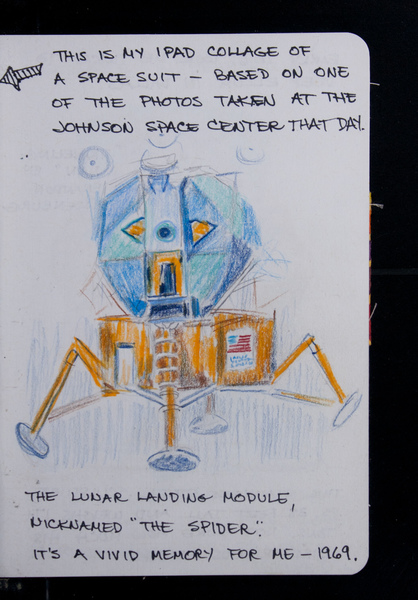 THIS IS MY IPAD COLLAGE OF
A SPACE SUIT – BASED ON ONE
OF THE PHOTOS TAKEN AT THE
JOHNSON SPACE CENTER THAT DAY.
UNITED STATES
THE LUNAR LANDING MODULE,
NICKNAMED "THE SPIDER".
IT'S A VIVID MEMORY FOR ME – 1969.